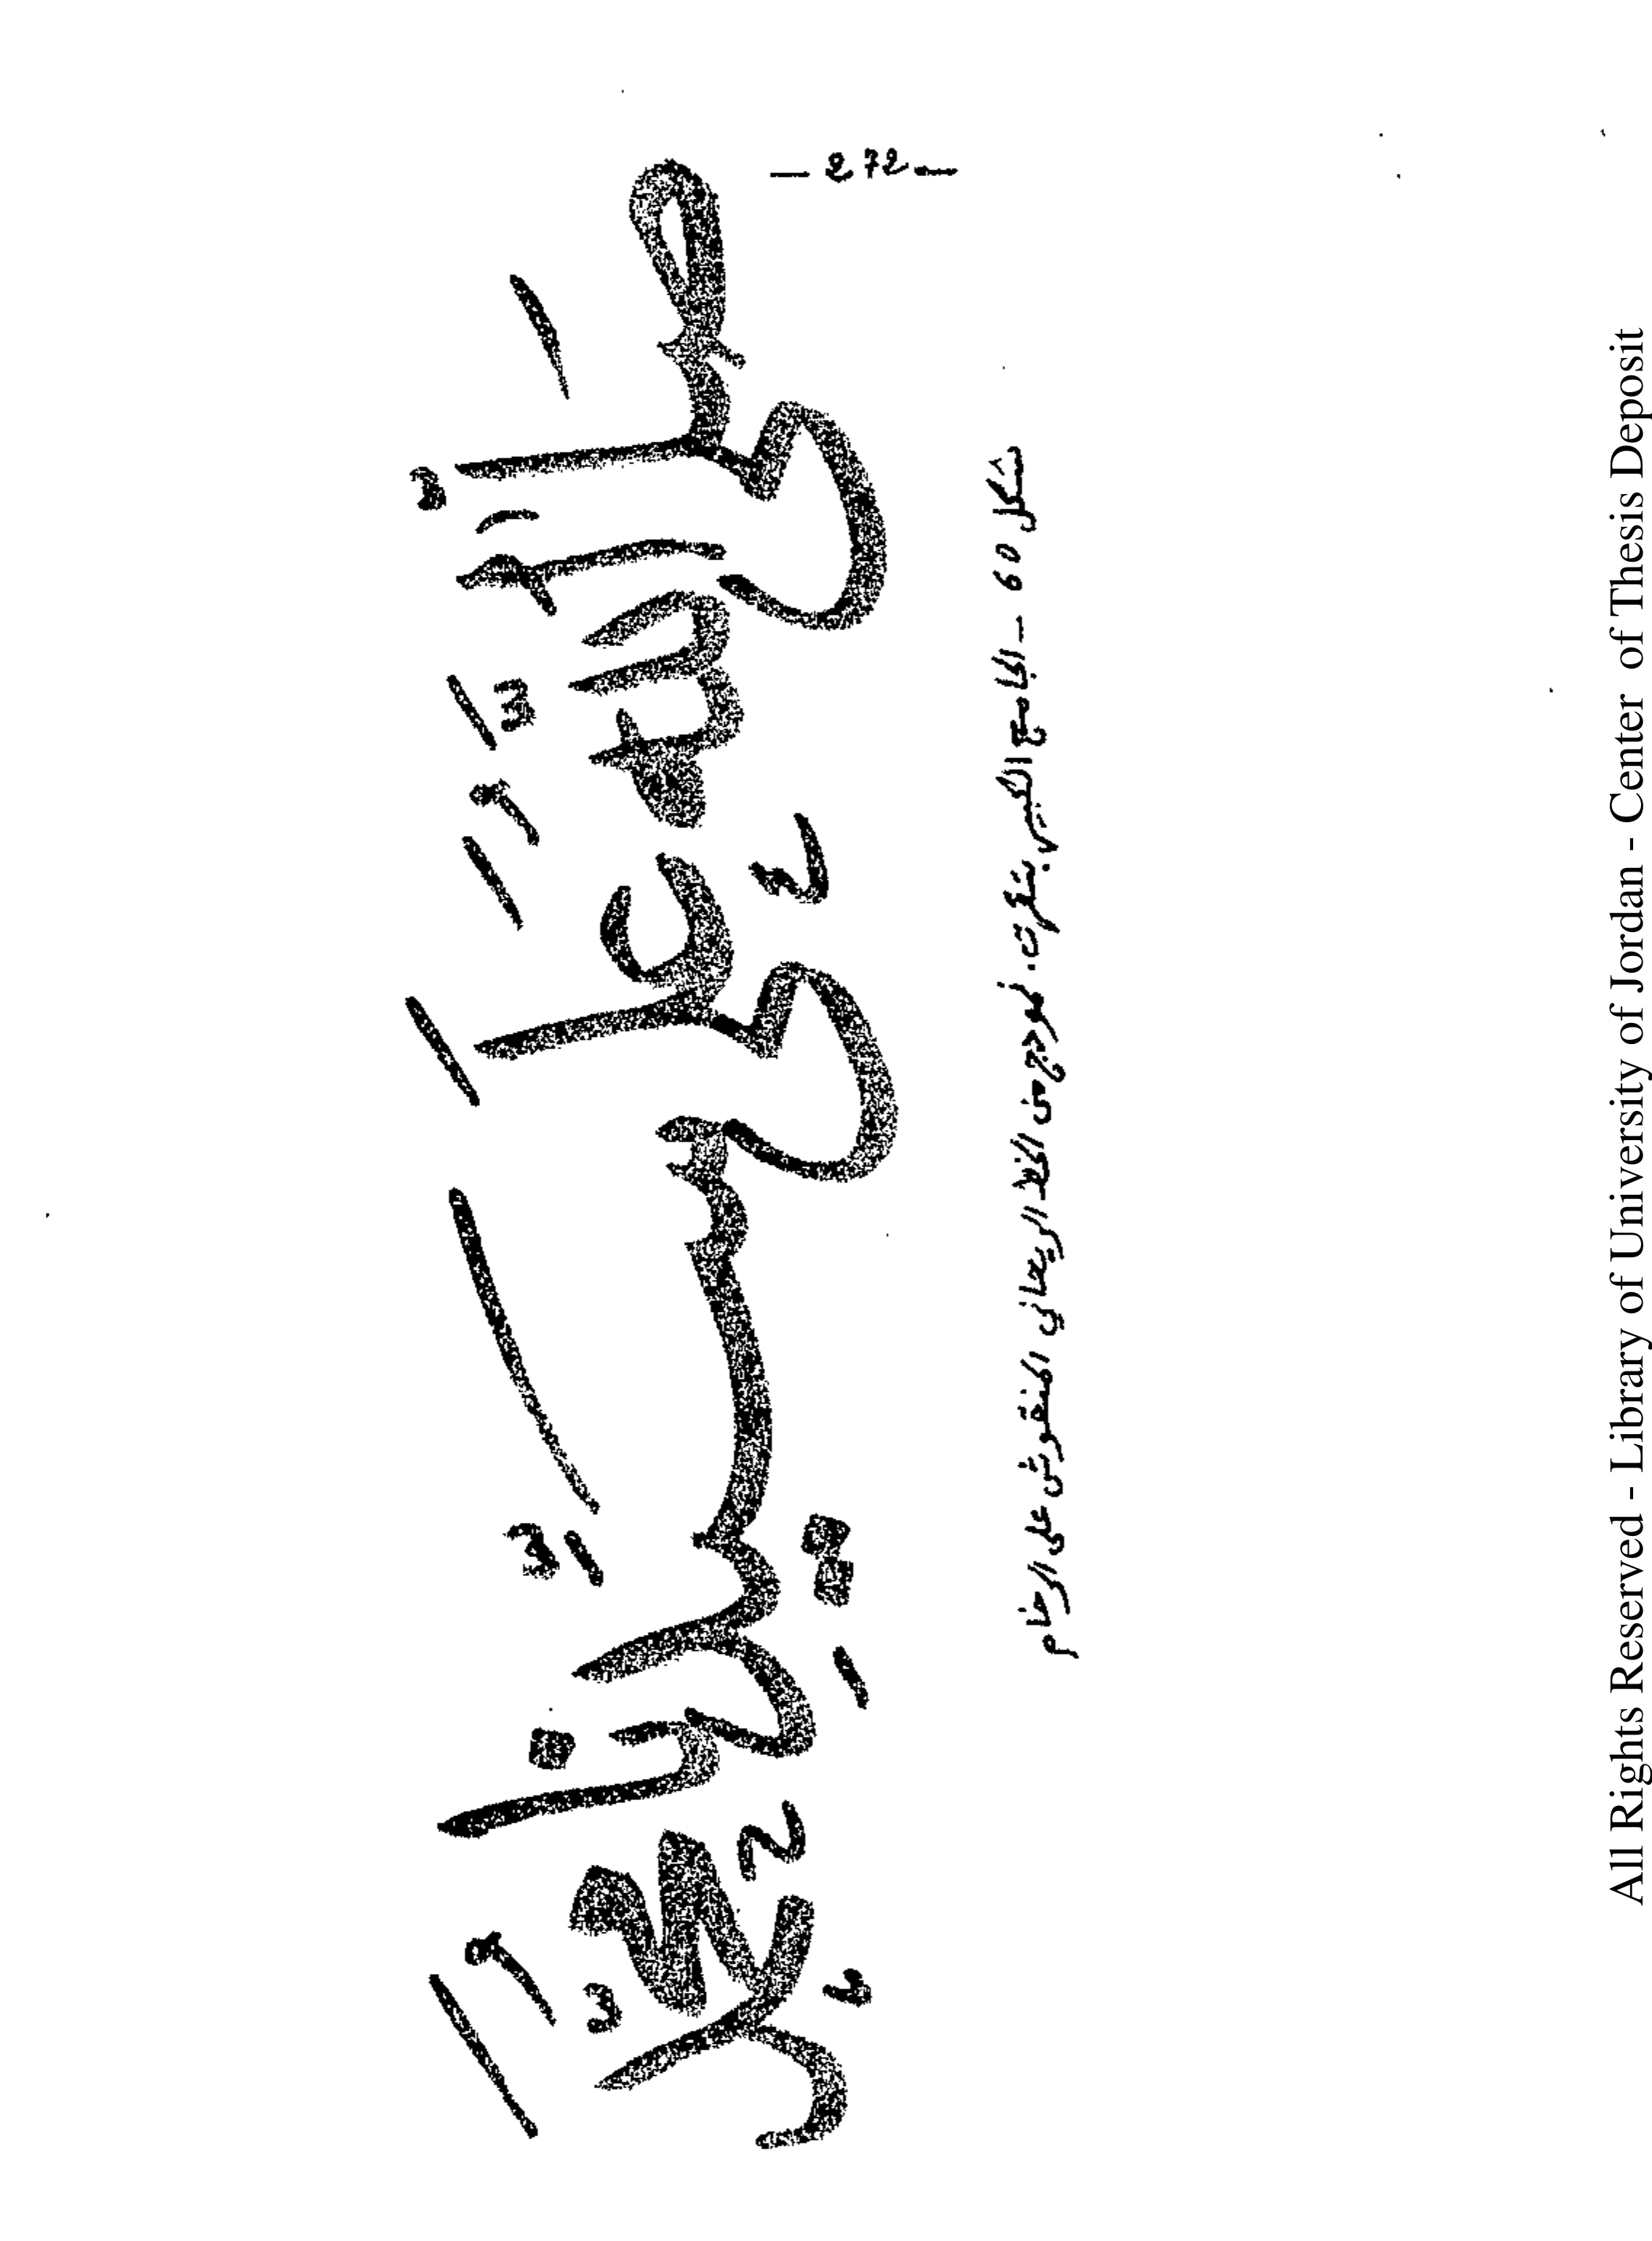 — 272 —
صَلَّى اللهُ عَلَى سَيِّدِنَا مُحَمَّد
شكل 60 – الجامع الكبير بتقرت. نموذج من الخط الريحاني المنقوش على الرخام
All Rights Reserved - Library of University of Jordan - Center of Thesis Deposit